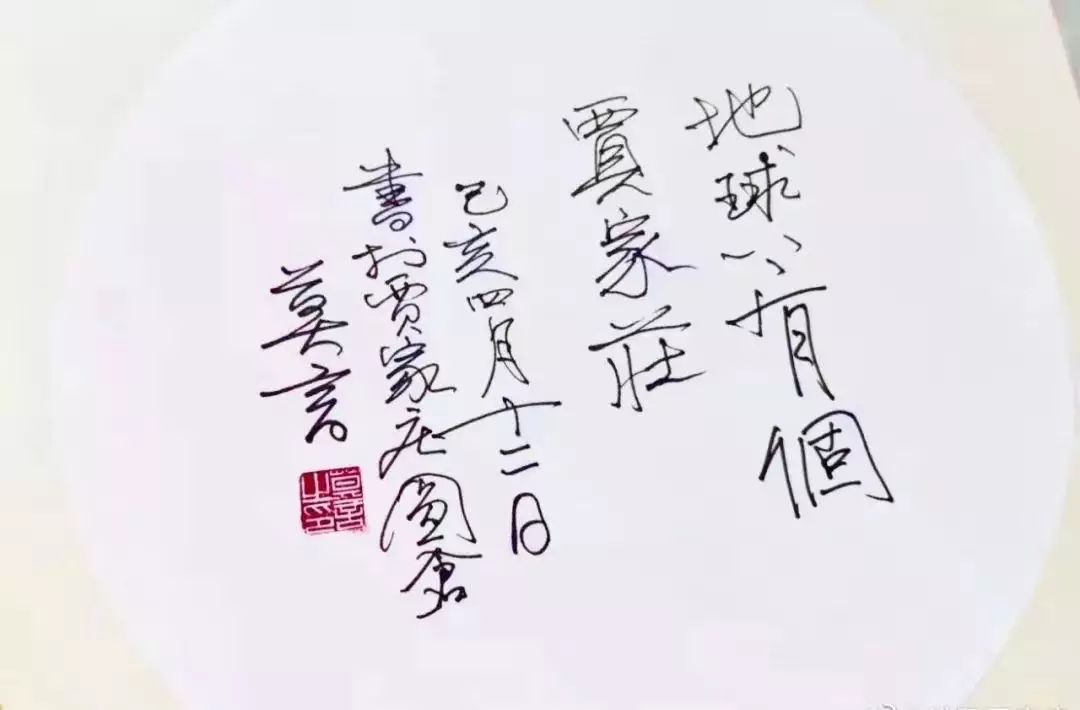 地球上有個
賈家莊
己亥四月十二日
書於賈家庄圓倉
莫言